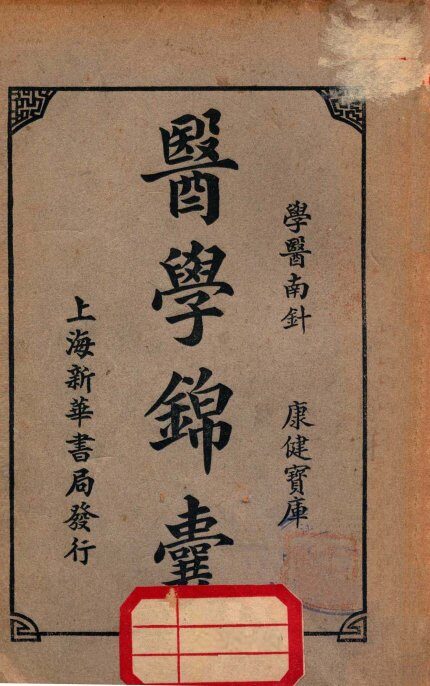 學醫南針 康健寶庫
醫學錦囊
上海新華書局發行